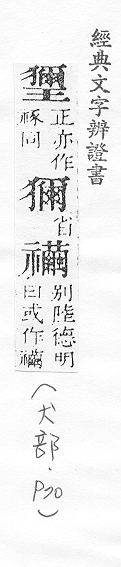 經典文字辨證書
正亦作
同
獮
省
別陸德明
曰或作
（犬部·P70）